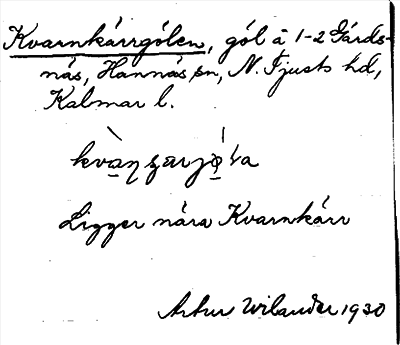 Kvarnkärrgölen, göl å 1-2 Gärds-
näs, Hannäs sn, N. Tjusts hd,
Kalmar l.
Ligger nära Kvarnkärr
Artur Wilander 1930